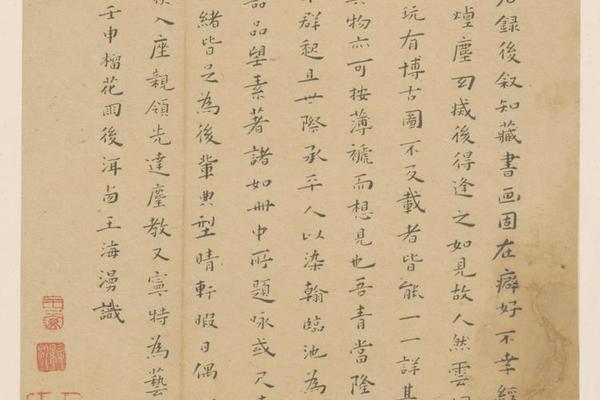 錄後叙知藏書画固在癖好不幸經
煙塵刼搣後得逢之如見故人然雲
玩有博古圖不及載者皆能一一詳其
物亦可按薄褫而想見也吾青當隆
群起且世際承平人以染翰臨池為
品品望素著諸如冊中所題咏或尺
緒皆足為後輩典型晴軒暇日偶
入座親領先達麈教又寧特為藝
壬申榴花雨後洱卤王海漫識